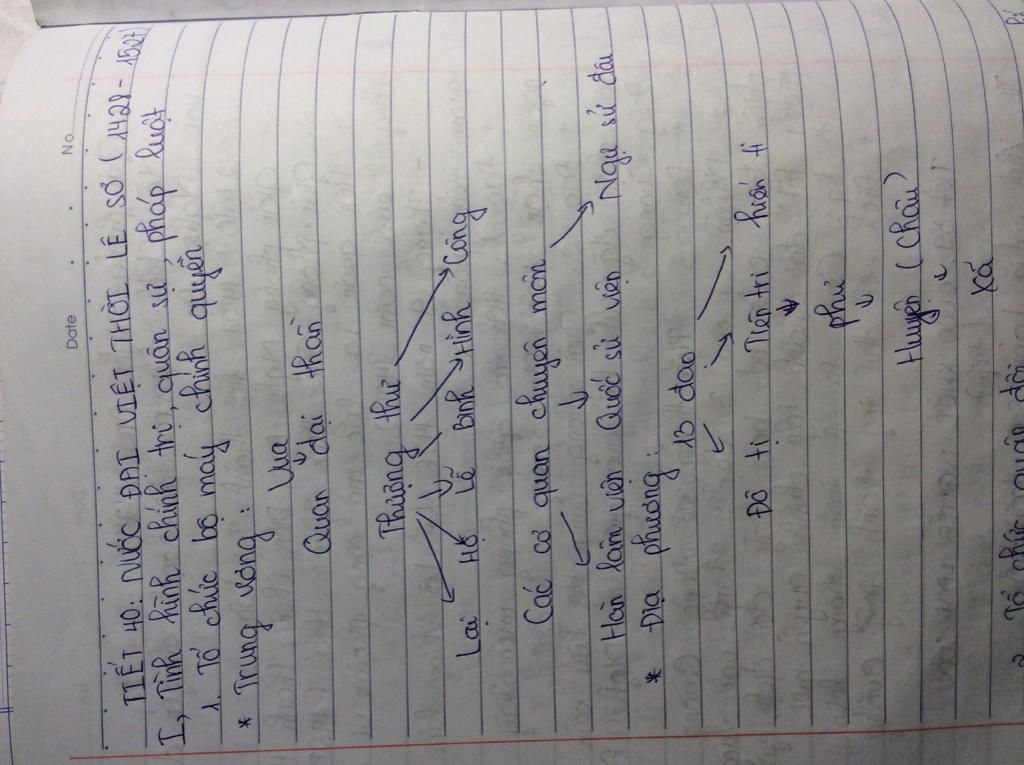 No.
Date
TIẾT 40: NƯỚC ĐẠI VIỆT THỜI LÊ SƠ (1428 - 1527)
I, Tình hình chính trị, quân sự, pháp luật
1. Tổ chức bộ máy chính quyền
* Trung ương:
Vua
Quan đại thần
Thượng thư
Lại Hộ Lễ Binh Hình Công
Các cơ quan chuyên môn
Hàn lâm viện Quốc sử viện Ngự sử đài
* Địa phương:
13 đạo
Đô ti Tiên ti hiến ti
phủ
Huyện (Châu)
Xã
2. Tổ chức quân đội